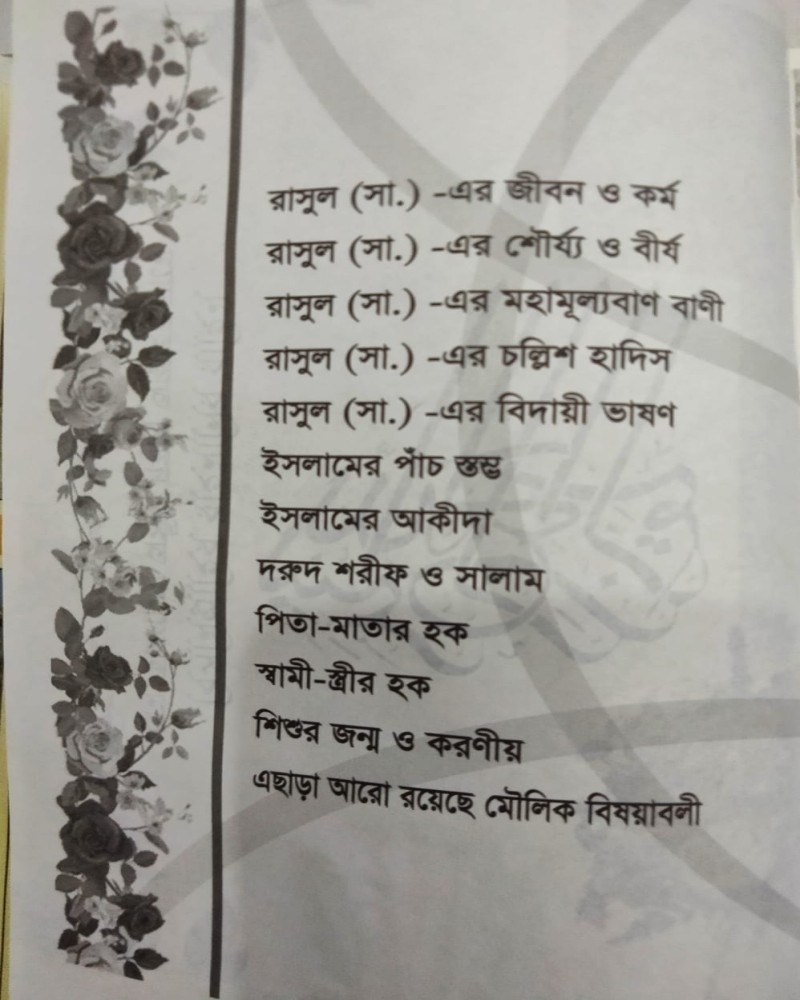 রাসূল (সা.) -এর জীবন ও কর্ম
রাসূল (সা.) -এর শৌর্য্য ও বীর্য
রাসূল (সা.) -এর মহামূল্যবাণ বাণী
রাসূল (সা.) -এর চল্লিশ হাদিস
রাসূল (সা.) -এর বিদায়ী ভাষণ
ইসলামের পাঁচ স্তম্ভ
ইসলামের আকীদা
দরুদ শরীফ ও সালাম
পিতা-মাতার হক
স্বামী-স্ত্রীর হক
শিশুর জন্ম ও করণীয়
এছাড়া আরো রয়েছে মৌলিক বিষয়াবলী